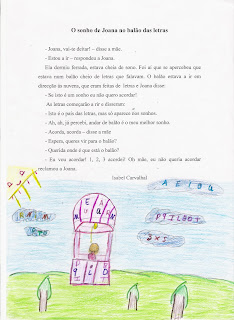 O sonho de Joana no balão das letras
- Joana, vai-te deitar! – disse a mãe.
- Estou a ir – respondeu a Joana.
Ela dormia ferrada, estava cheia de sono. Foi aí que se apercebeu que
estava num balão cheio de letras que falavam. O balão estava a ir em
direcção às nuvens, que eram feitas de letras e Joana disse:
- Se isto é um sonho eu não quero acordar!
As letras começarão a rir e disseram:
- Isto é o país das letras, mas só aparece nos sonhos.
- Ah, ah, já percebi, andar de balão é o meu melhor sonho.
- Acorda, acorda – disse a mãe
- Espera, queres vir para o balão?
- Querida onde é que está o balão?
- Eu vou acordar! 1, 2, 3 acordei! Oh mãe, eu não queria acordar
reclamou a Joana.
Isabel Carvalhal
A E I O U